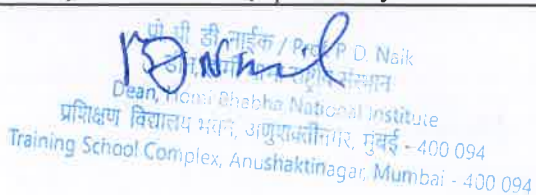 डी नाईक / Prof. P. D. Naik
Dean, Homi Bhabha National Institute
प्रशिक्षण विद्यालय भवन, अणुशक्तीनगर, मुंबई - 400 094
Training School Complex, Anushaktinagar, Mumbai - 400 094